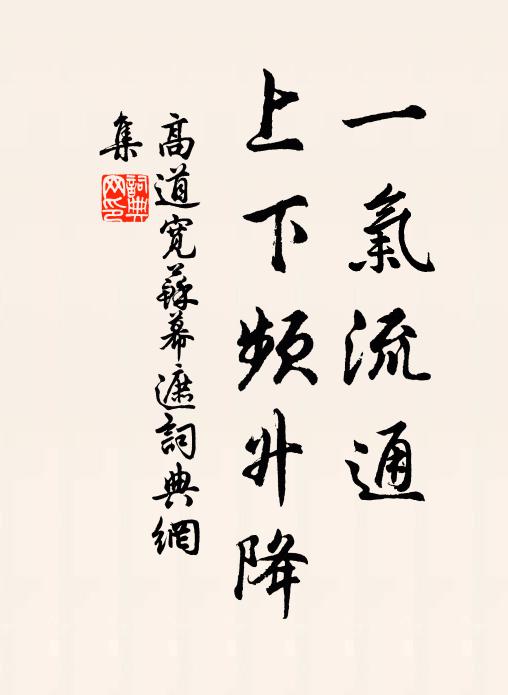 一氣流通
上下頻升降
高道寬蘇幕遮詞典網
集
詞典網印